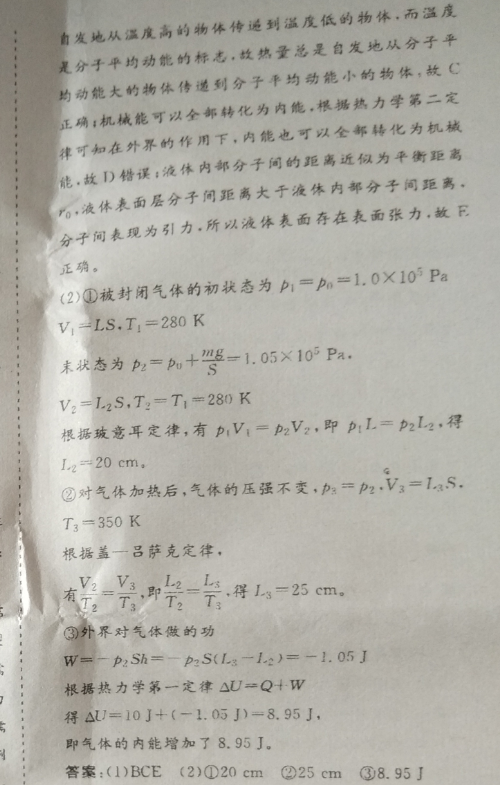 自发地从温度高的物体传递到温度低的物体,而温度
是分子平均动能的标志,故热量总是自发地从分子平
均动能大的物体传递到分子平均动能小的物体,故 C
正确;机械能可以全部转化为内能,根据热力学第二定
律可知在外界的作用下,内能也可以全部转化为机械
能,故 D 错误;液体内部分子间的距离近似为平衡距离
r₀,液体表面层分子间距离大于液体内部分子间距离,
分子间表现为引力,所以液体表面存在表面张力,故 E
正确。
(2)①被封闭气体的初状态为 p₁=p₀=1.0×10⁵ Pa
V₁=LS,T₁=280 K
末状态为 p₂=p₀+mg/S=1.05×10⁵ Pa,
V₂=L₂S,T₂=T₁=280 K
根据玻意耳定律,有 p₁V₁=p₂V₂,即 p₁L=p₂L₂,得
L₂=20 cm。
②对气体加热后,气体的压强不变,p₃=p₂,V₃=L₃S,
T₃=350 K
根据盖—吕萨克定律,
有V₂/T₂=V₃/T₃,即L₂/T₂=L₃/T₃,得 L₃=25 cm。
③外界对气体做的功
W=-p₂Sh=-p₂S(L₃-L₂)=-1.05 J
根据热力学第一定律 ΔU=Q+W
得 ΔU=10 J+(-1.05 J)=8.95 J,
即气体的内能增加了 8.95 J。
答案:(1)BCE (2)①20 cm ②25 cm ③8.95 J